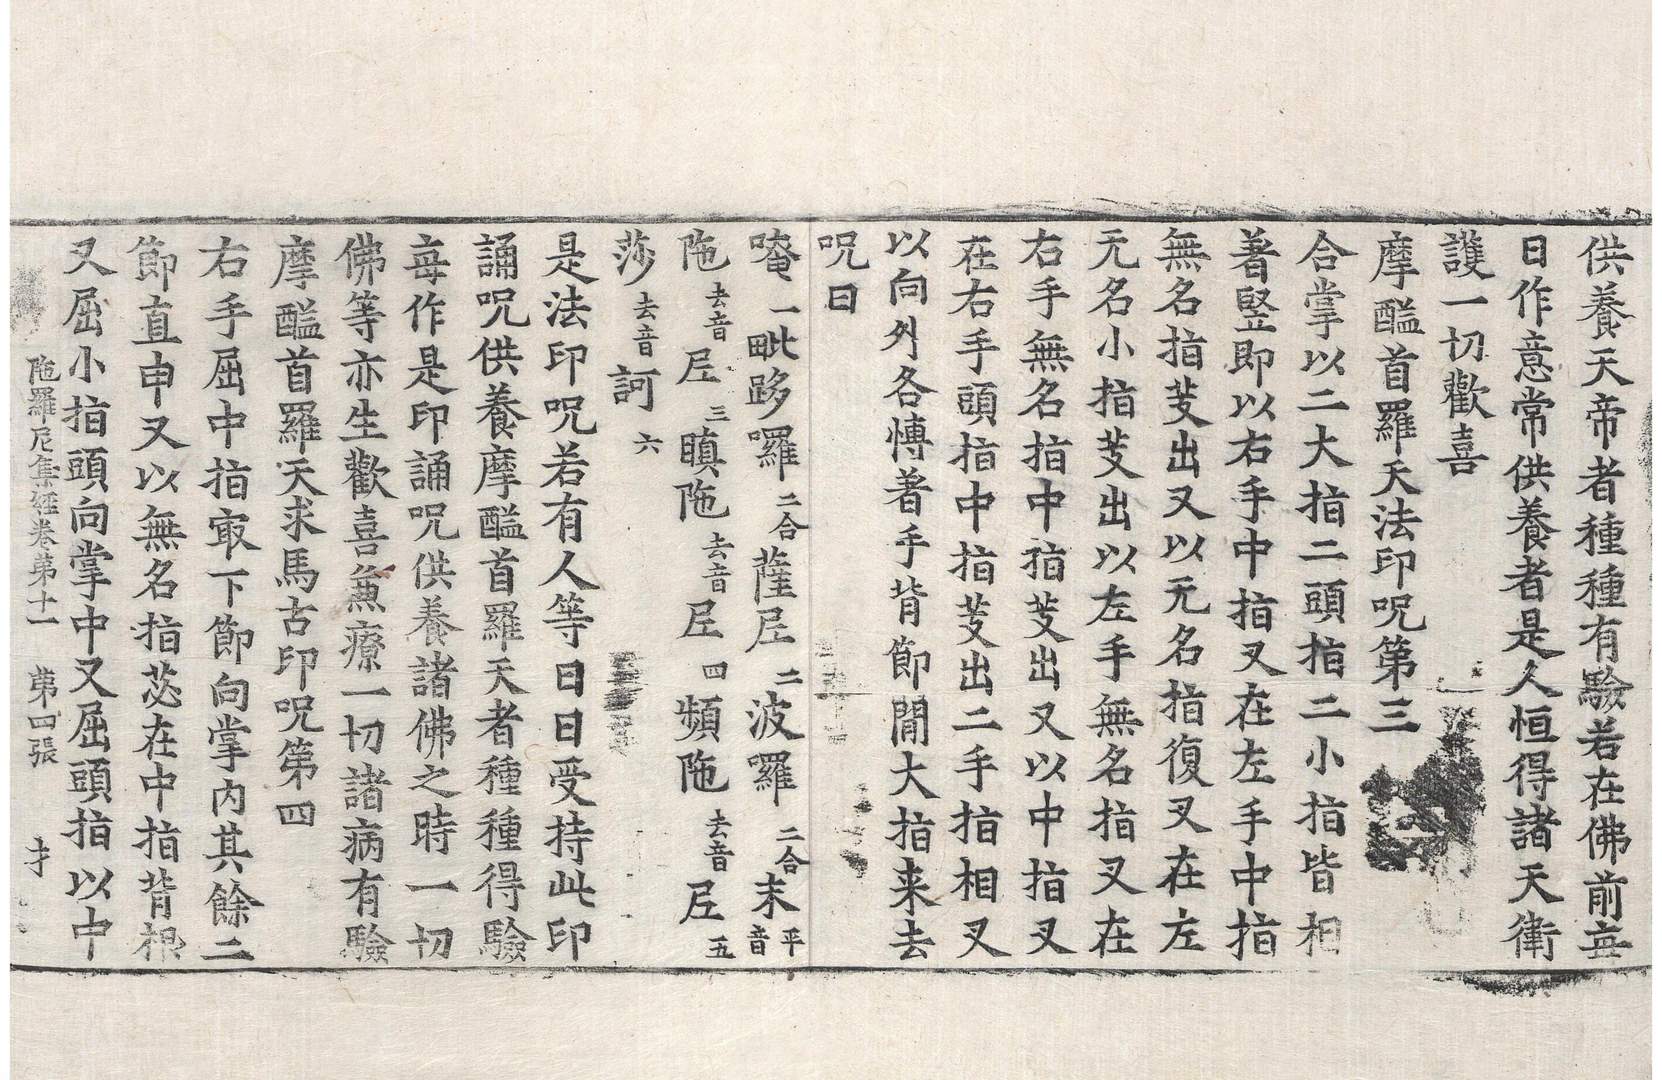 供養天帝者種種有驗若在佛前每
日作意常供養者是人恒得諸天衛
護一切歡喜
摩醯首羅天法印呪第三
合掌以二大指二頭指二小指皆相
著竪即以右手中指叉在左手中指
無名指岐出又以无名指復叉在左
无名小指岐出以左手無名指叉在
右手無名指中指岐出又以中指叉
在右手頭指中指岐出二手指相叉
以向外各博著手背節間大指来去
呪曰
唵一毗跢囉二合薩尼二波囉二合末平音
陁去音尼三瞋陁去音尼四頻陁去音尼五
莎去音訶六
是法印呪若有人等日日受持此印
誦呪供養摩醯首羅天者種種得驗
每作是印誦呪供養諸佛之時一切
佛等亦生歡喜兼療一切諸病有驗
摩醯首羅天求馬古印呪第四
右手屈中指㝡下節向掌内其餘二
節直申又以無名指苾在中指背根
又屈小指頭向掌中又屈頭指以中
陁羅尼集經卷第十一 第四張 才